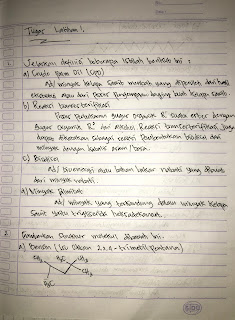 Tugas Latihan 1
1. Jelaskan definisi beberapa istilah berikut ini :
a) Crude Palm Oil (CPO)
Adl minyak kelapa sawit mentah yang diperoleh dari hasil
ekstraksi atau dari proses pengempaan daging buah kelapa sawit.
b) Reaksi Transesterifikasi
Proses pertukaran gugus organik R" suatu ester dengan
gugus organik R' dari alkohol. Reaksi transesterifikasi juga
sering dikatakan sebagai reaksi pembentukan biodisel dari
minyak dengan katalis asam / basa.
c) Biodisel
Adl bioenergi atau bahan bakar nabati yang dibuat
dari minyak nabati.
d) Minyak
Adl minyak yang terkandung dalam minyak kelapa
sawit yaitu trigliserida heksadekanoat.
2. Gambarkan struktur molekul dibawah ini.
a) Bensin (iso oktan 2,2,4-trimetil pentana)
H3C
CH3
CH3
H3C